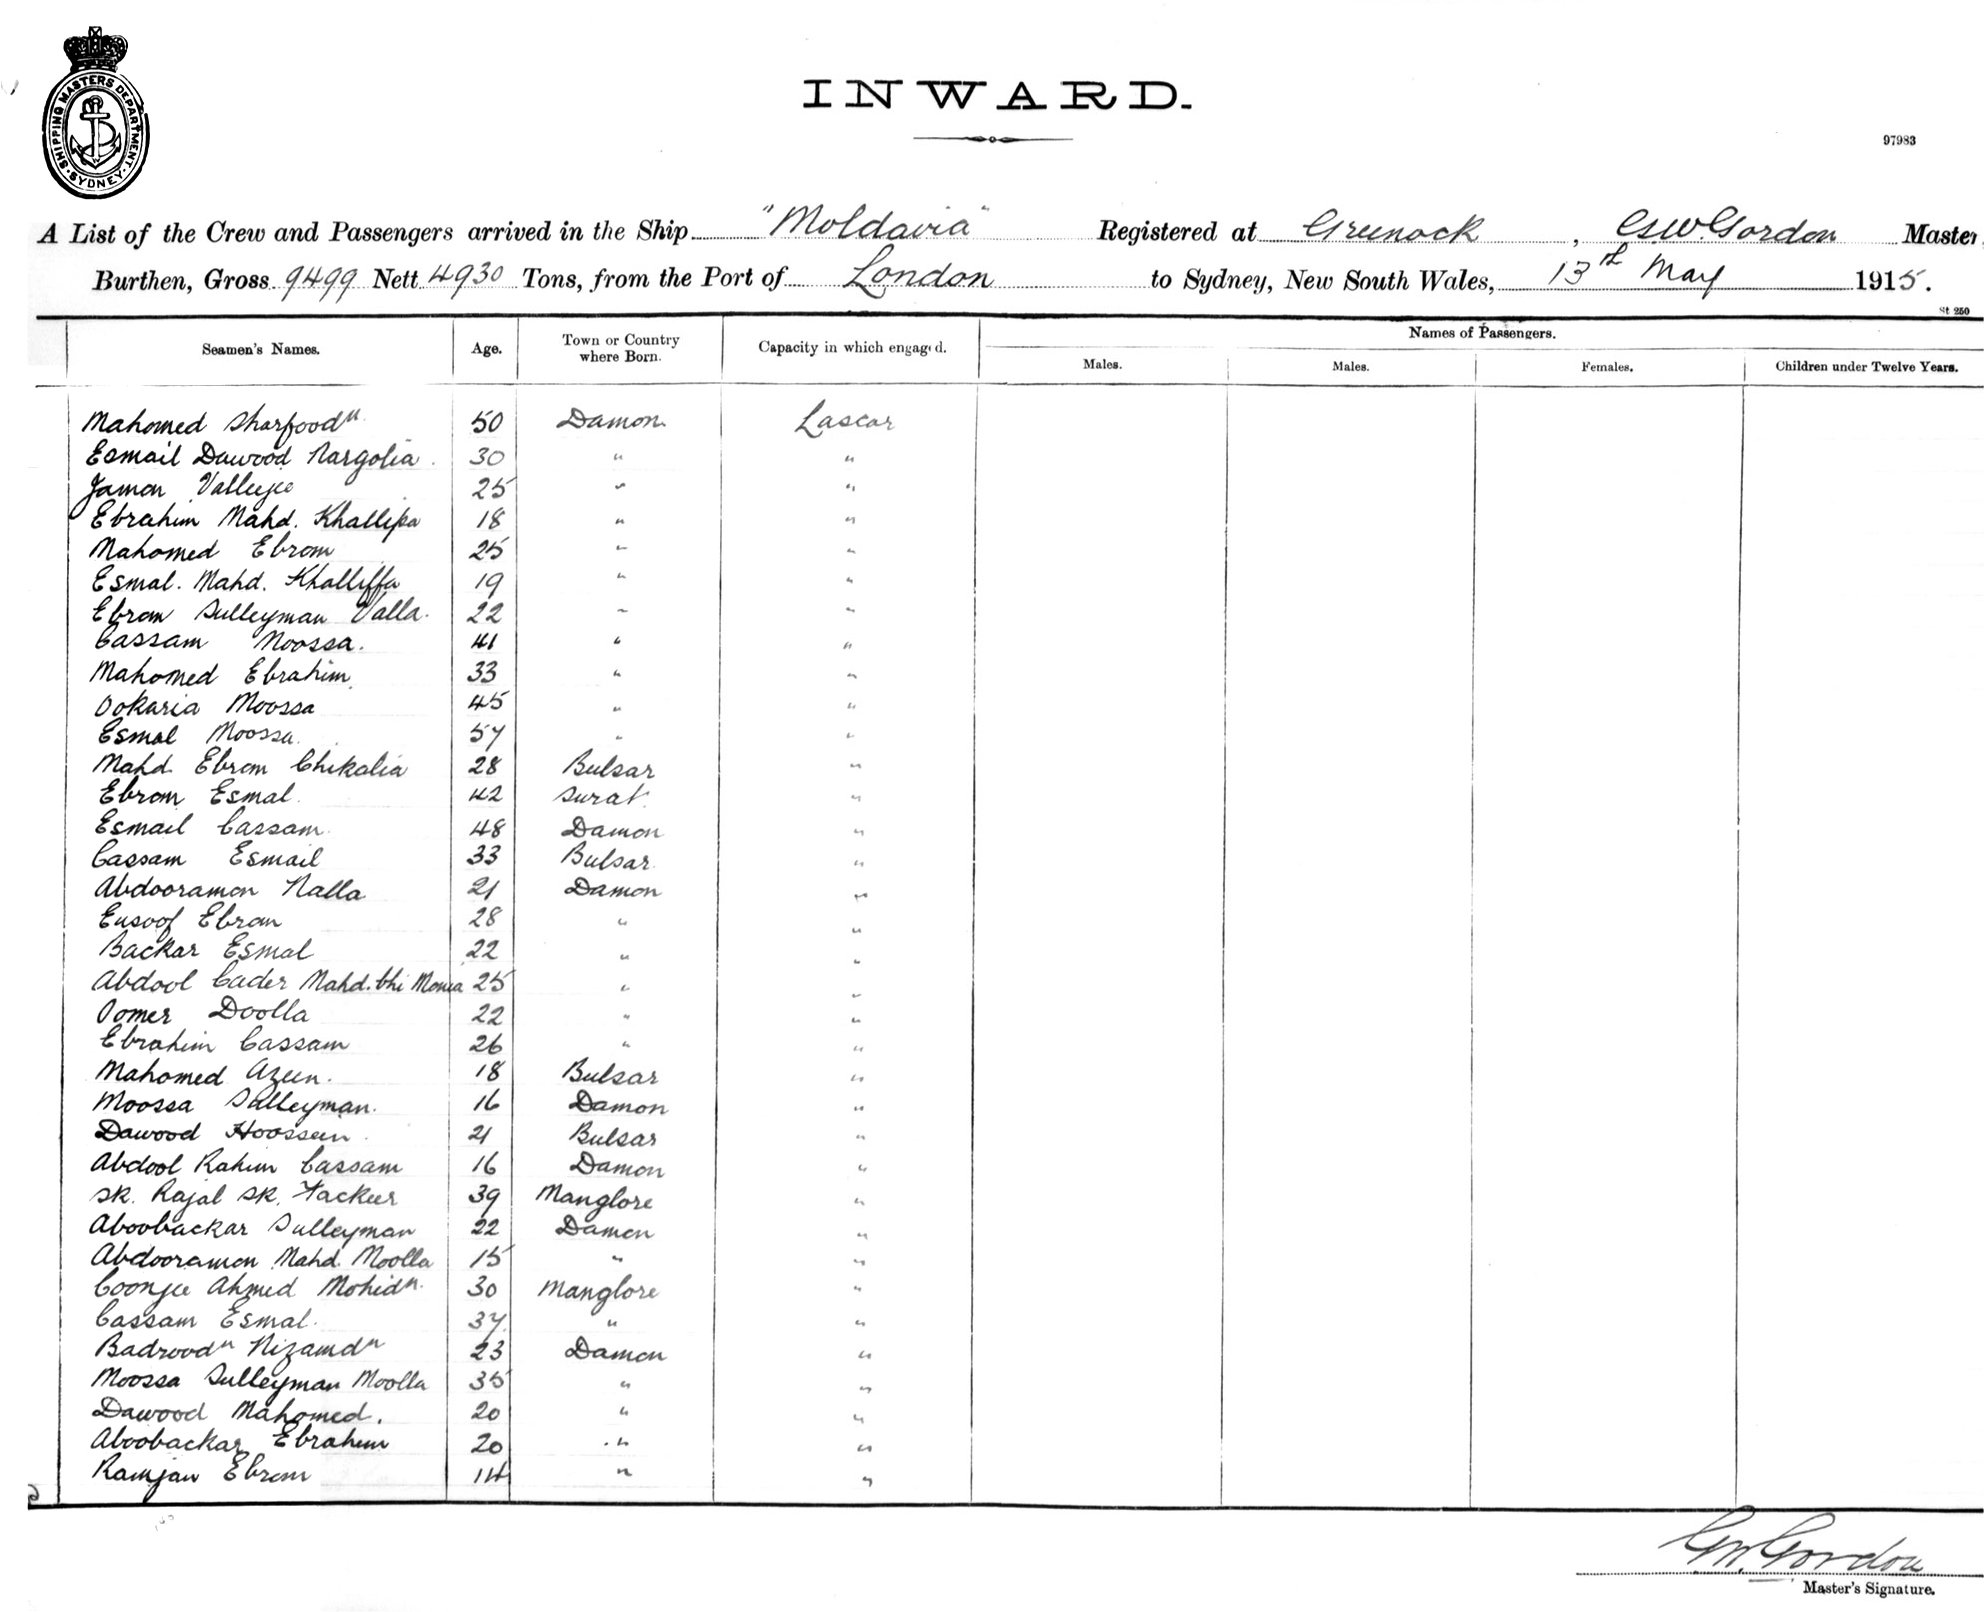 SHIPPING MASTERS DEPARTMENT
SYDNEY
INWARD.
97983
A List of the Crew and Passengers arrived in the Ship "Moldavia" Registered at Greenock, Gordon Master
Burthen, Gross 9499 Nett 4930 Tons, from the Port of London to Sydney, New South Wales, 13th May 1915.
St 250
Seamen's Names. Age. Town or Country where Born. Capacity in which engaged. Names of Passengers.
Males. Males. Females. Children under Twelve Years.
Mahomed Sharfoodn 50 Damon Lascar
Esmail Dawood Nargolia 30 " "
Jamon Vallejee 25 " "
Ebrahim Mahd. Khallifa 18 " "
Mahomed Ebrom 25 " "
Esmal. Mahd. Khalliffa 19 " "
Ebrom Sulleyman Valla. 22 " "
Cassam Moossa. 41 " "
Mahomed Ebrahim 33 " "
Ookaria Moossa 45 " "
Esmal Moossa. 57 " "
Mahd Ebrom Chikalia 28 Bulsar "
Ebrom Esmal. 42 Surat "
Esmail Cassam 48 Damon "
Cassam Esmail 33 Bulsar "
Abdooramon Nalla 21 Damon "
Eusoof Ebrom 28 " "
Backar Esmal 22 " "
Abdool Cader Mahd. bhi 25 " "
Oomer Doolla 22 " "
Ebrahim Cassam 26 " "
Mahomed Azeen. 18 Bulsar "
Moossa Sulleyman. 16 Damon "
Dawood Hoosseen 21 Bulsar "
Abdool Rahim Cassam 16 Damon "
SK. Rajal SK. Fackeer 39 Manglore "
Aboobackar Sulleyman 22 Damon "
Abdooramon Mahd. Moolla 15 " "
Coonjee Ahmed Mohidn. 30 Manglore "
Cassam Esmal. 37 " "
Badroodn Nizamdn 23 Damon "
Moossa Sulleyman Moolla 35 " "
Dawood Mahomed. 20 " "
Aboobackar Ebrahim 20 " "
Ramjan Ebrom 14 " "
Gordon
Master's Signature.